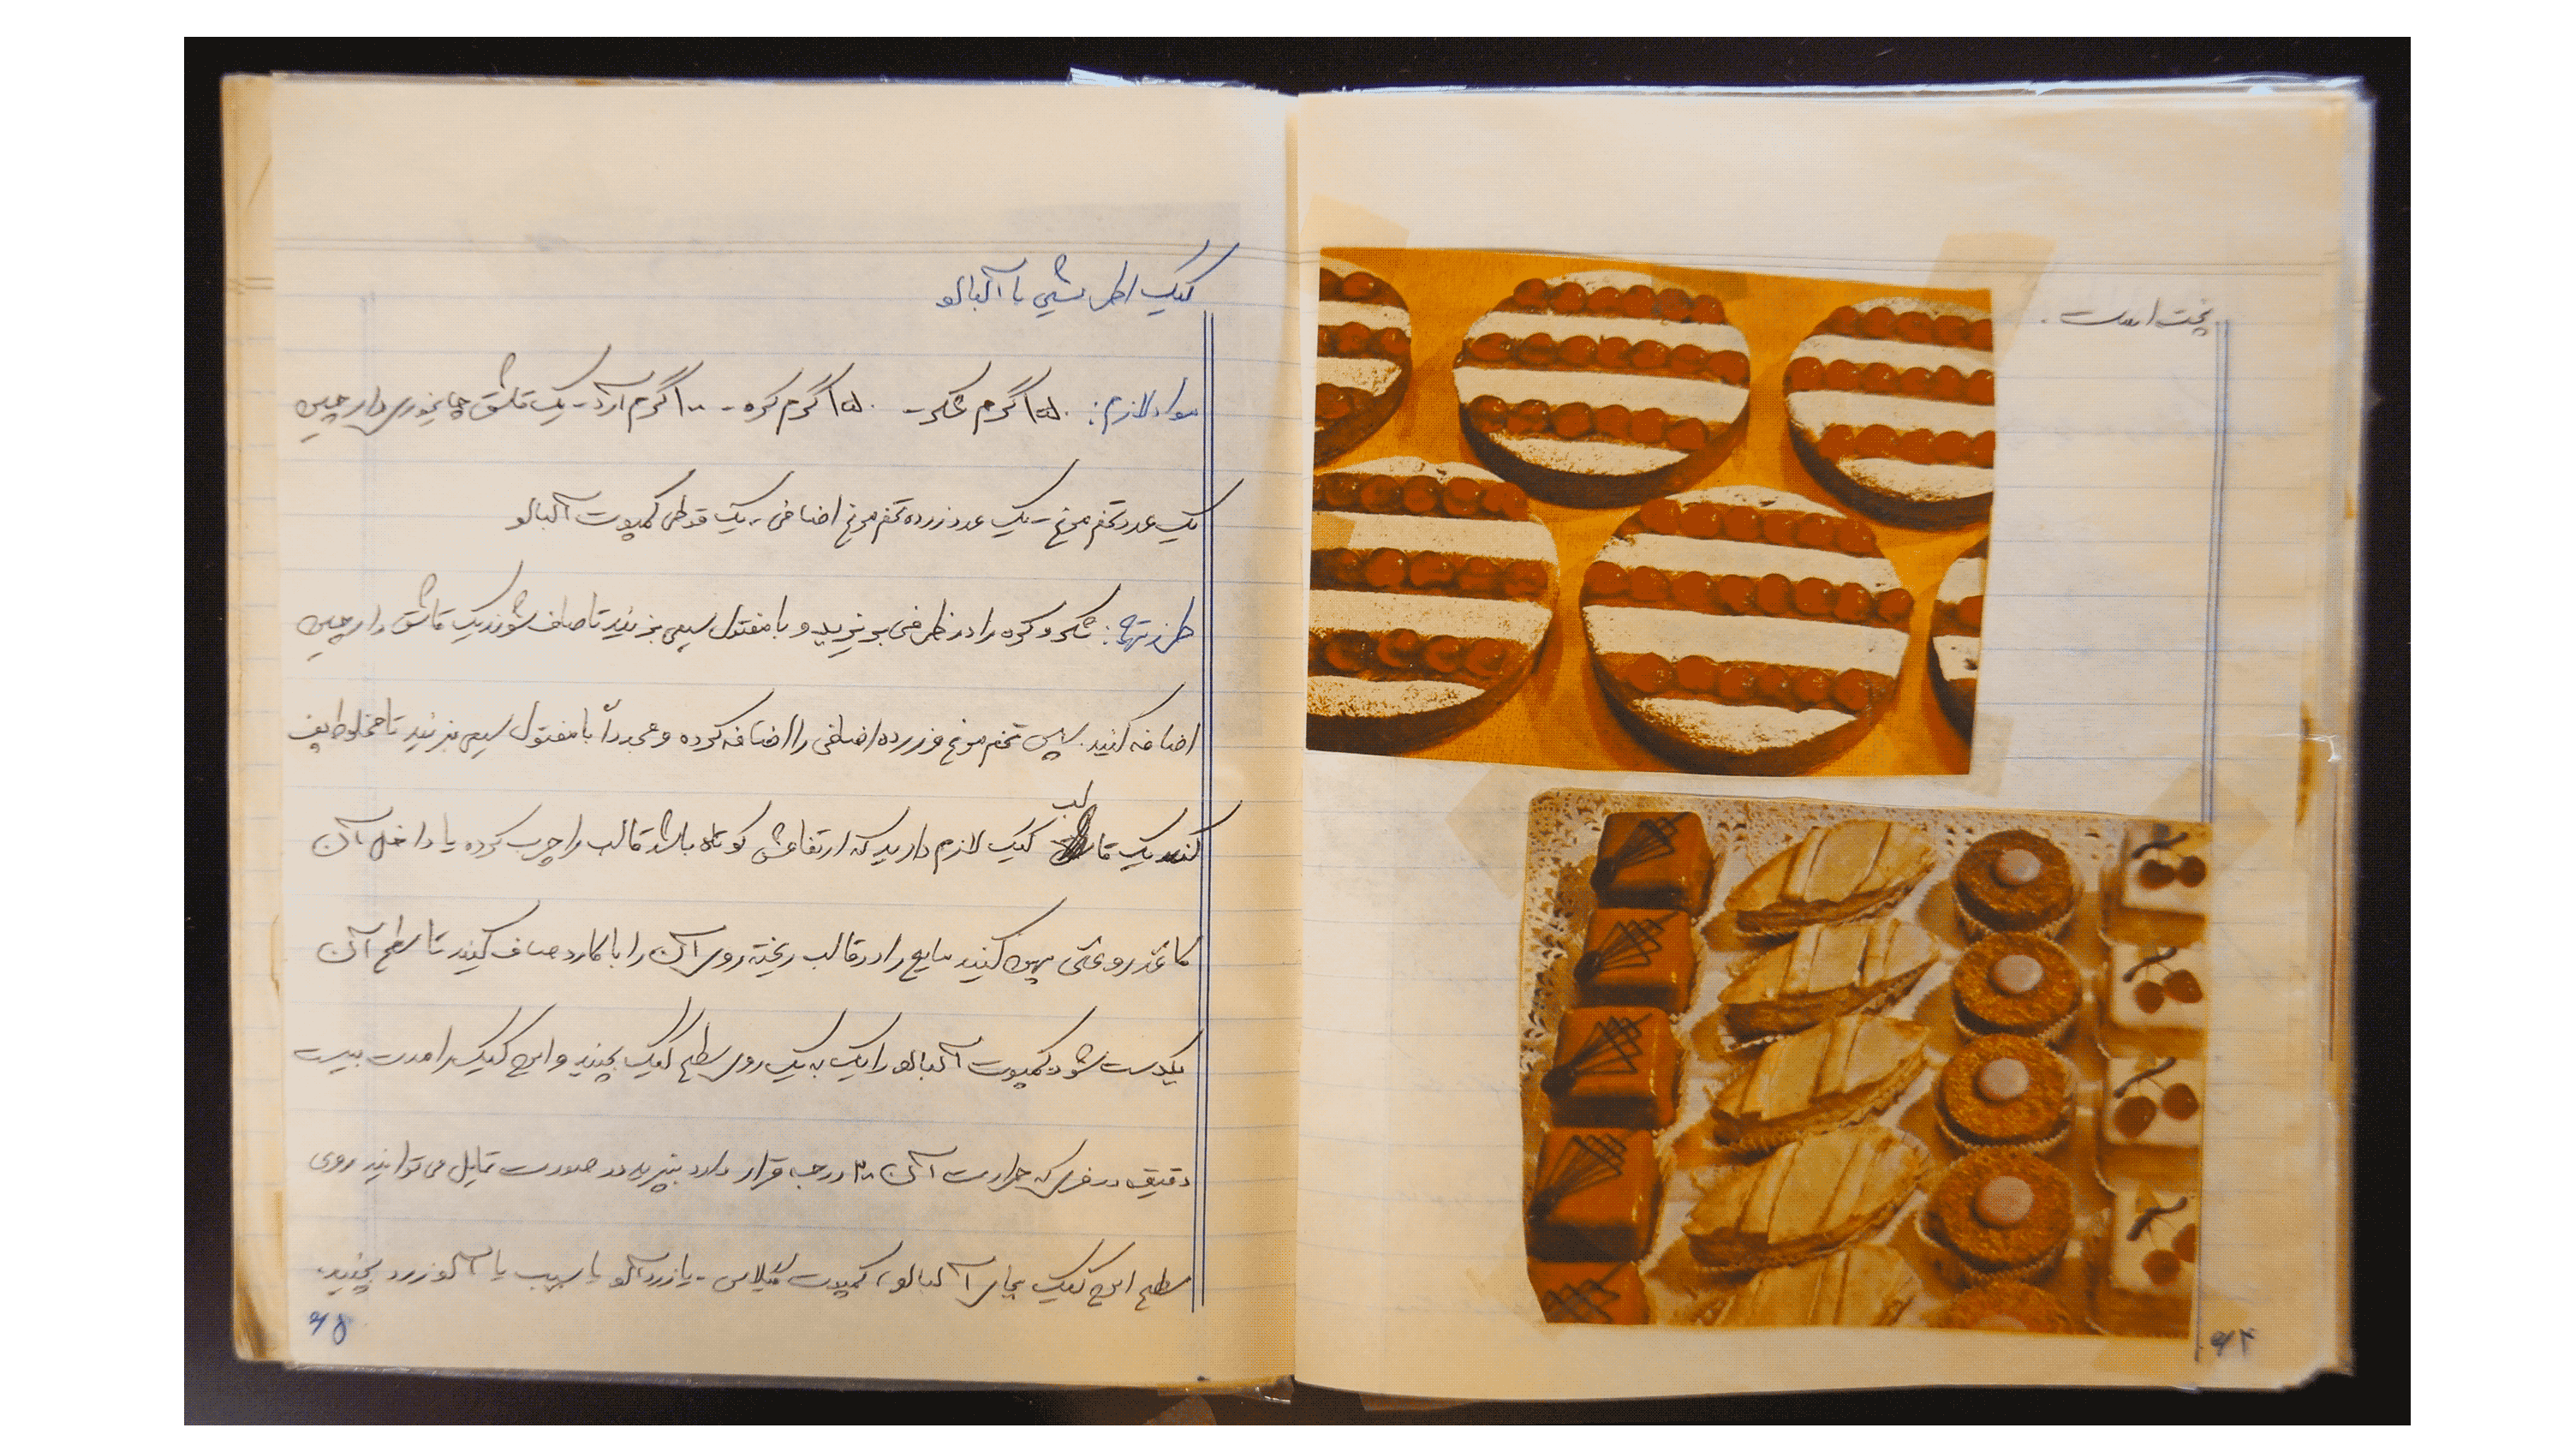 پخت است.
۶۴
کیک اطریشی با آلبالو
مواد لازم: ۱۵۰ گرم شکر - ۱۵۰ گرم کره - ۱۰۰ گرم آرد - یک قاشق چایخوری دارچین
یک عدد تخم مرغ - یک عدد زرده تخم مرغ اضافی - یک قوطی کمپوت آلبالو
طرز تهیه: شکر و کره را در ظرفی بریزید و با مفتول سیمی بزنید تا صاف شوند یک قاشق دارچین
اضافه کنید. سپس تخم مرغ و زرده اضافی را اضافه کرده و مجدداً با مفتول سیمی بزنید تا مخلوط پف
کند یک قالب کیک لازم دارید که ارتفاعش کوتاه باشد قالب را چرب کرده یا داخل آن
کاغذ روغنی پهن کنید مایع را در قالب ریخته روی آن را با کارد صاف کنید تا سطح آن
یکدست شود کمپوت آلبالو را یک به یک روی سطح کیک بچینید و این کیک را مدت بیست
دقیقه در فر که حرارت آن ۲۰۰ درجه قرار دارد بپزید در صورت تمایل می توانید روی
سطح این کیک بجای آلبالو، کمپوت گیلاس - یا زردآلو یا سیب یا آلو زرد بچینید.
۶۵